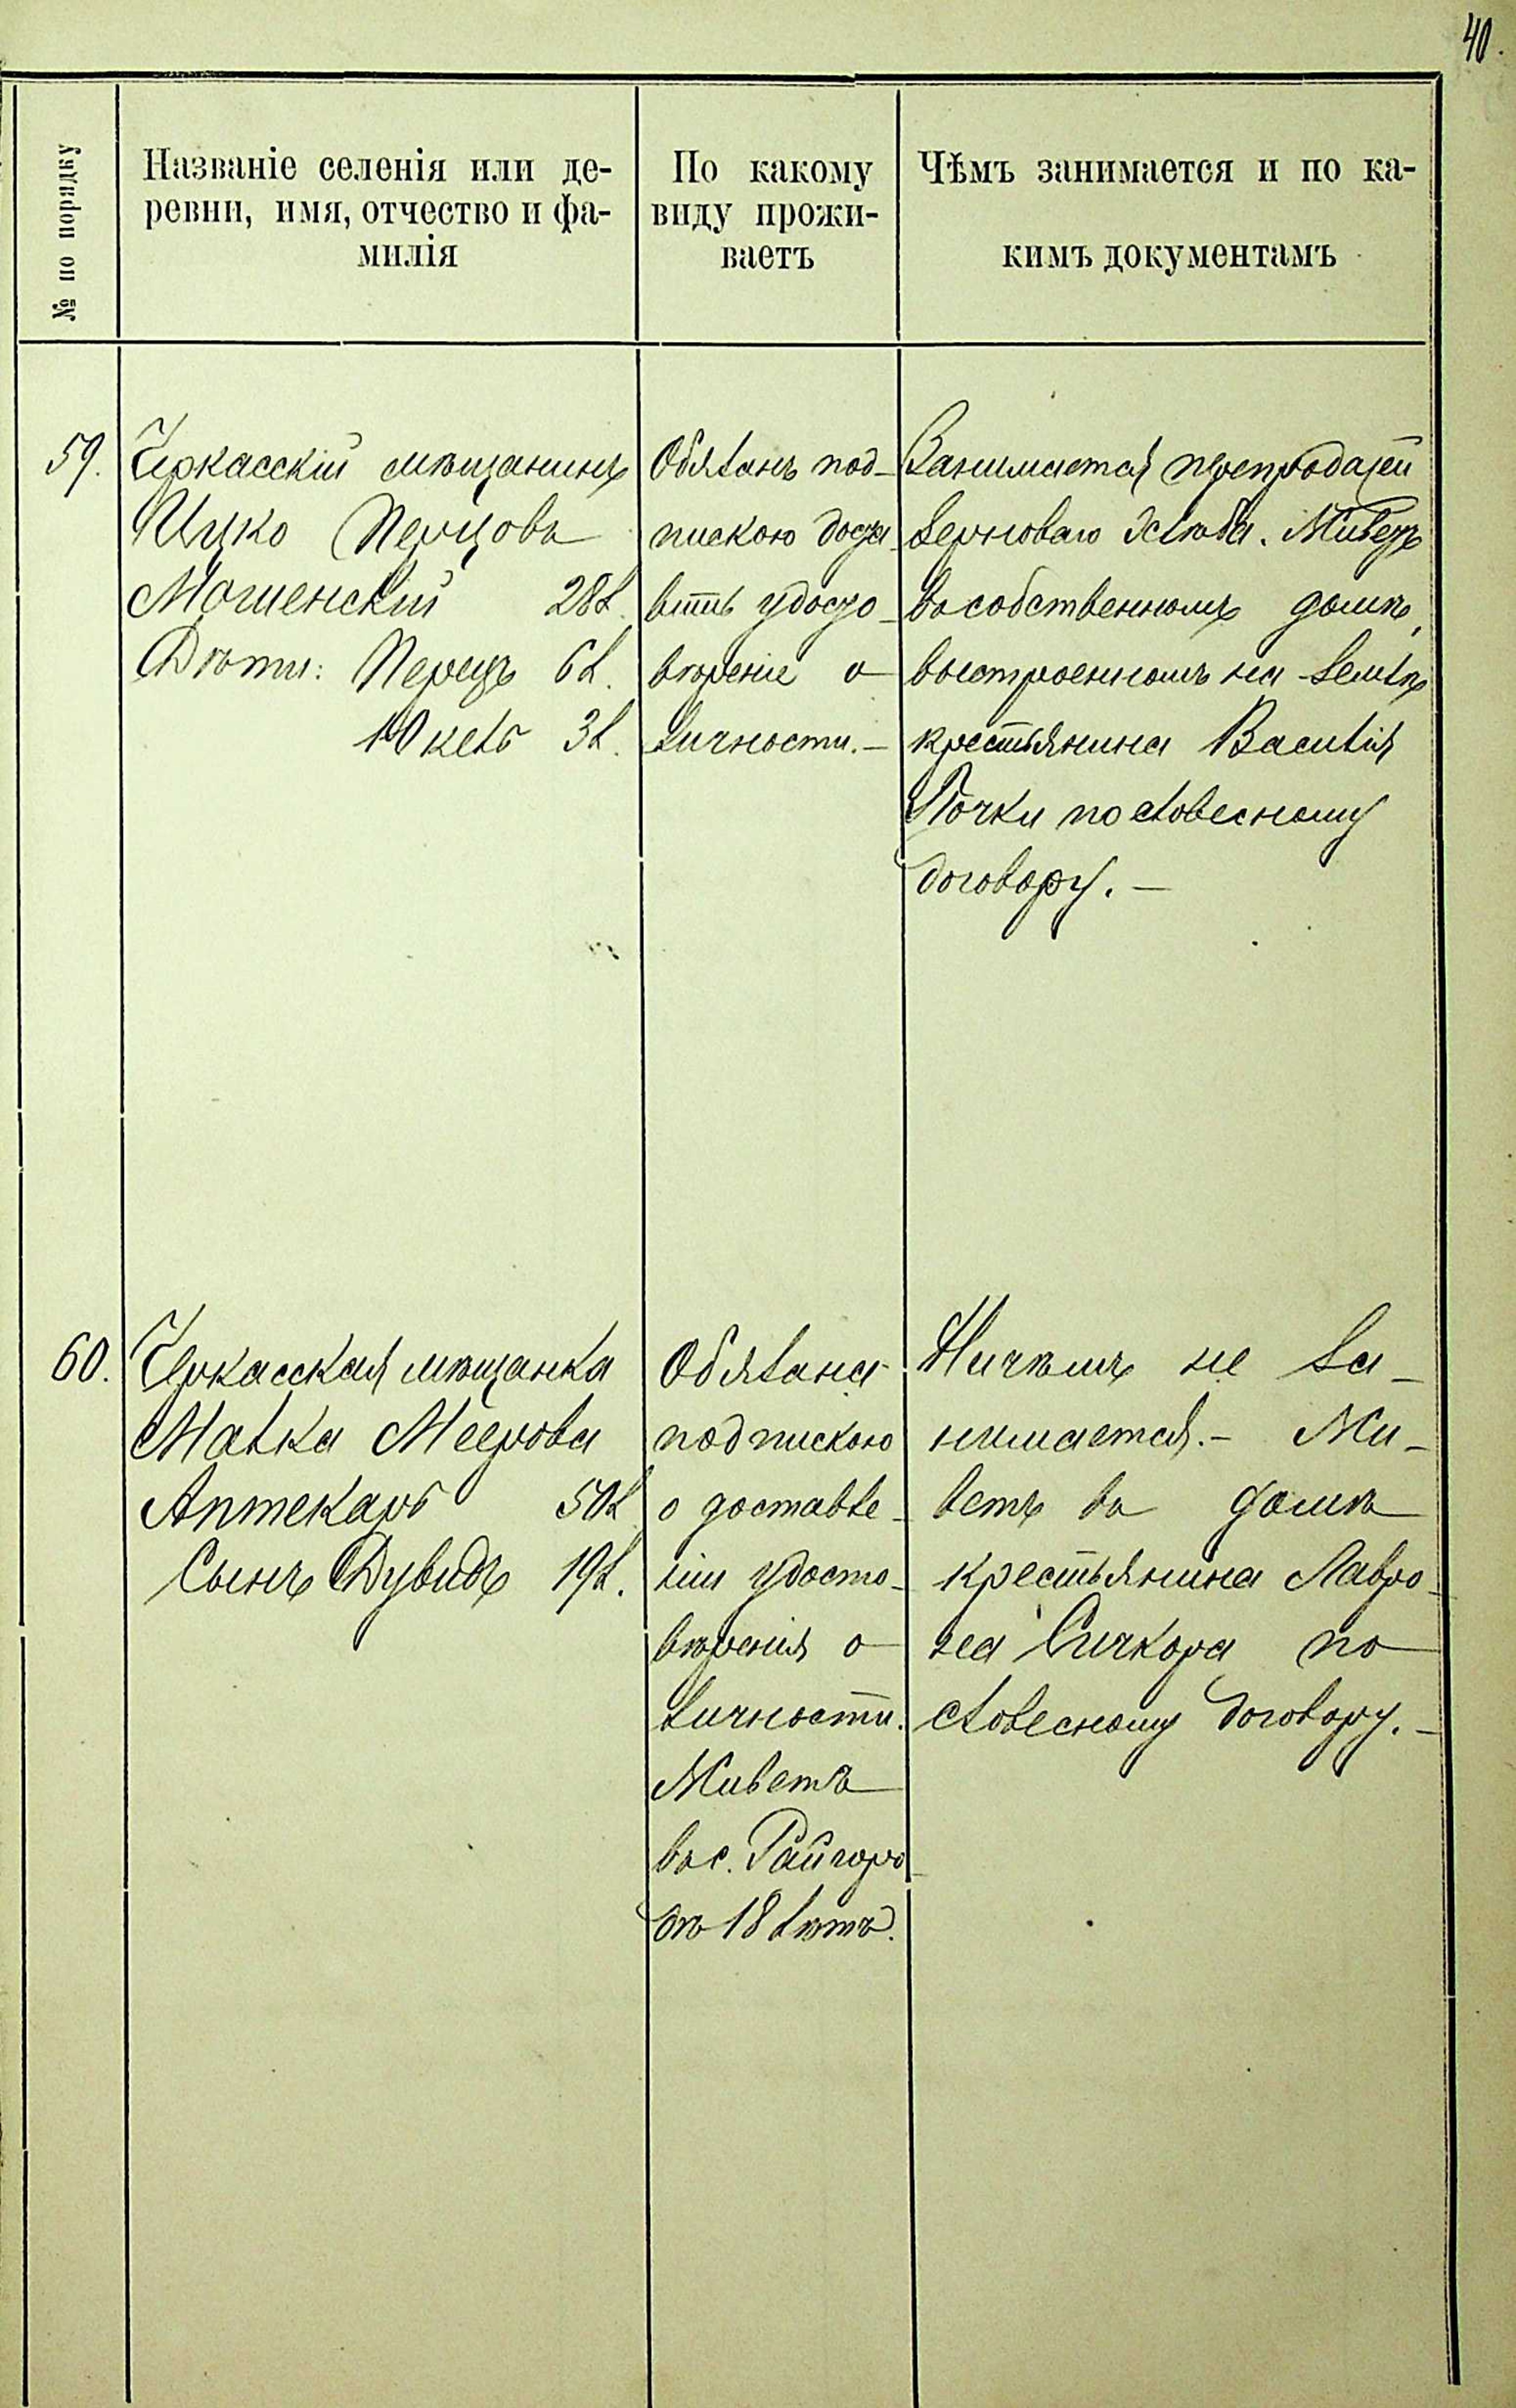 40.
№ по порядку
Названіе селенія или де-
ревни, имя, отчество и фа-
милія
По какому
виду прожи-
ваетъ
Чѣмъ занимается и по ка-
кимъ документамъ
59.
Черкасскій мѣщанинъ
Ицко Перцовъ
Мошенскій 28 л.
Дѣти: Перецъ 6 л.
Іокель 3 л.
Обязанъ под-
пискою доста-
вить удосто-
вѣреніе о
личности. —
Занимается препродажей
зерноваго хлѣба. Живетъ
въ собственномъ домѣ,
выстроенномъ на землѣ
крестьянина Василія
Почки по словесному
договору. —
60.
Черкасская мѣщанка
Малка Меерова
Аптекарь 50 л.
Сынъ Дувидъ 19 л.
Обязана
подпискою
о доставле-
ніи удосто-
вѣренія о
личности.
Живетъ
въ с. Райгоро-
дѣ 18 лѣтъ.
Ничѣмъ не за-
нимается. — Жи-
ветъ въ домѣ
крестьянина Лавро-
на Сичкора по
словесному договору. —